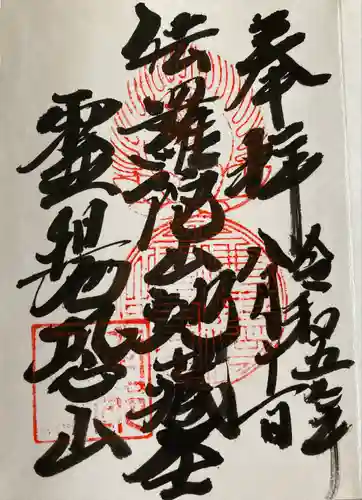 奉拝
令和五年
八月十一日
伝羅陀山地蔵尊
霊場恐山